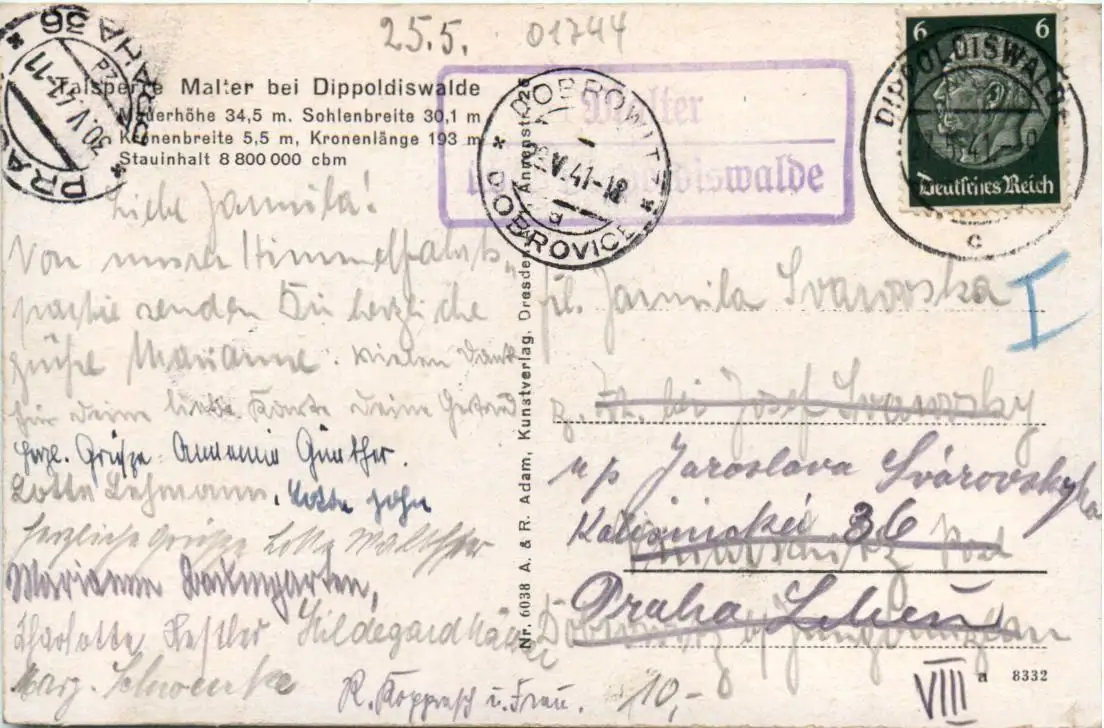 25.5. 01744
Talsperre Malter bei Dippoldiswalde
Mauerhöhe 34,5 m. Sohlenbreite 30,1 m
Kronenbreite 5,5 m, Kronenlänge 193 m
Stauinhalt 8 800 000 cbm
PRAG PRAHA 36
30.V.41-11
Malter
Dippoldiswalde
DOBROWITZ
V.41-18
a
DOBROVICE
DIPPOLDISWALDE
c
6 6
Deutsches Reich
Liebe Jarmila!
Von unserer Himmelfahrts-
partie senden Dir herzliche
Grüße Marianne. Vielen Dank
für Deine liebe Karte Deine Gertrud
herzl. Grüße Annemie Günther.
Lotte Lehmann, Lotte John
Herzliche Grüße Lotte Walther
Marianne Baumgarten,
Charlotte Hildegard
Marg.
R. Koppasch u. Frau.
10,-
Nr. 6038 A. & R. Adam, Kunstverlag, Dresden, Annenstraße
Frl. Jarmila Svarovska
I
z. Zt. bei Josef Svarovsky
up Jaroslava Svárovskyho
36
Post
Praha Lieben
Dobrowitz b/Jungbunzlau
VIII
a 8332